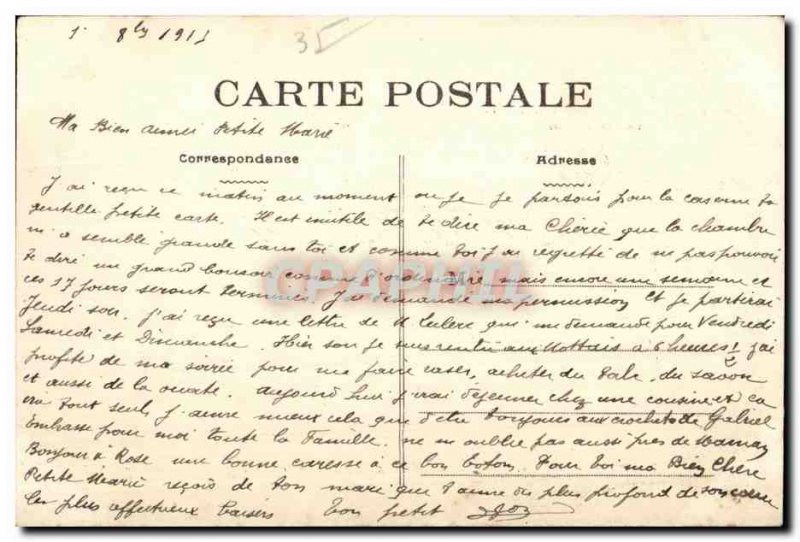 1 8bre 1911
CARTE POSTALE
Ma Bien aimée Petite Marie
Correspondance
Adresse
J'ai reçu ce matin au moment ou je je partais pour la caserne ta
gentille petite carte. Il est inutile de te dire ma Chérie que la chambre
m'a semblé grande sans toi et comme toi j'ai regretté de ne pas pouvoir
te dire un grand bonsoir comme d'ordinaire, mais encore une semaine et
ces 17 jours seront terminés. J'ai demandé ma permission et je partirai
Jeudi soir. J'ai reçu une lettre de M. Leclerc qui me demande pour Vendredi
Samedi et Dimanche. Hier soir je suis rentré aux à 6 heures! j'ai
profité de ma soirée pour me faire raser, acheter du Talc, du savon
et aussi de la ouate. Aujourd'hui j'irai déjeuner chez une cousine et ca
tout seul, j'aime mieux cela que d'être toujours aux crochets de Gabriel
Embrasse pour moi toute la famille. ne m'oublie pas aussi près de Maman
Bonjour à Rose une bonne caresse à ce bon Pour toi ma Bien Chère
Petite Marie reçois de ton mari qui t'aime du plus profond de son cœur
les plus affectueux baisers Ton petit